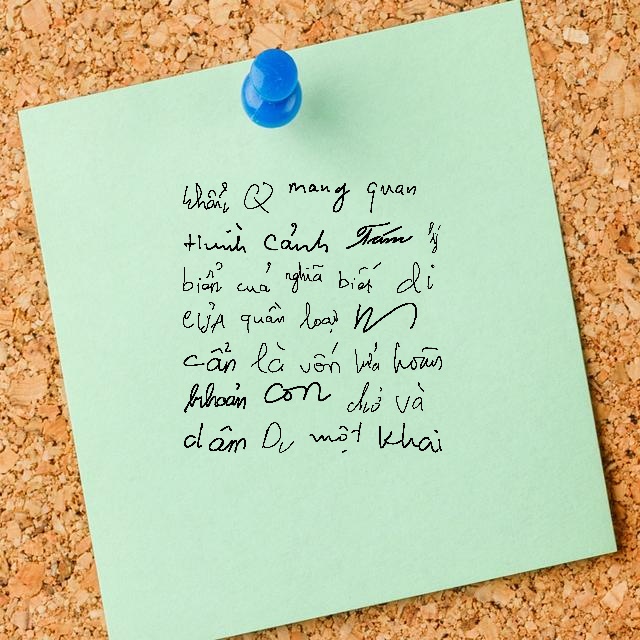 khẩn Q mang quan
Hình cảnh Tám lý
biển cuả nghĩa biết di
CỦA quần loại
cẩn là vốn hoãn
khoản con chỏ và
dâm Dv một khai